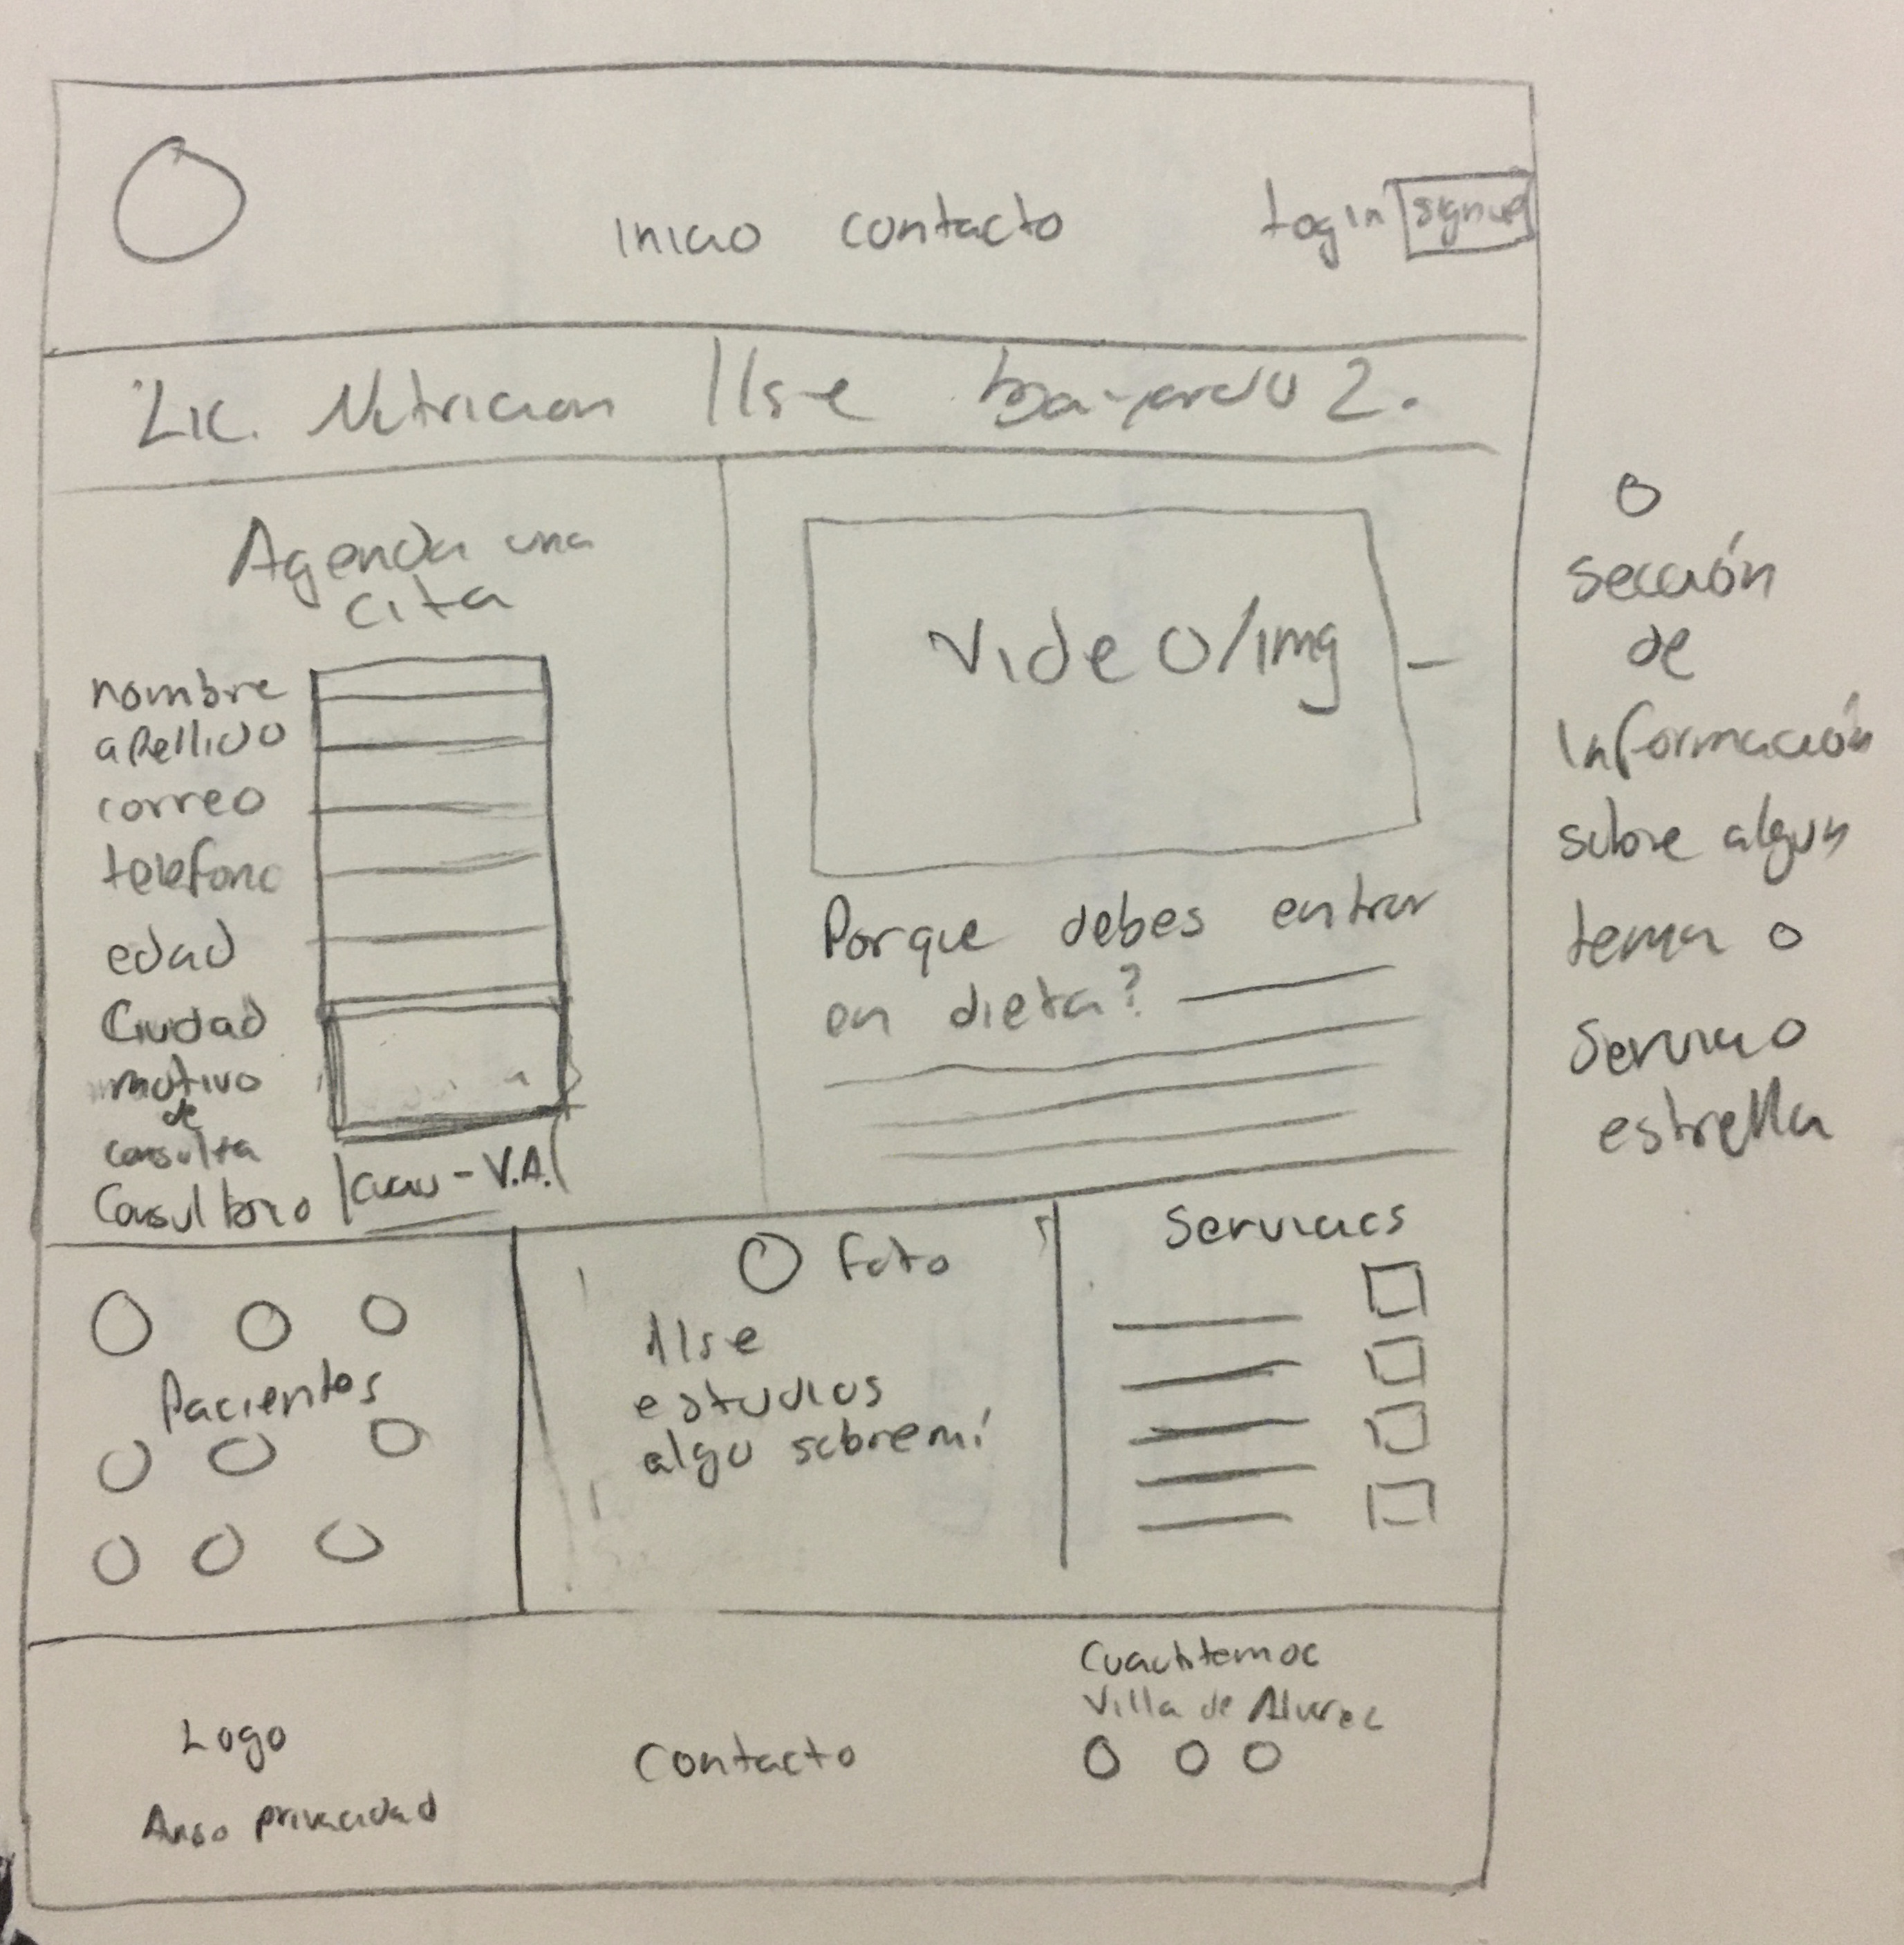 Inicio contacto
Login signup
Lic. Nutricion Ilse bayardo Z.
Agenda una
cita
nombre
apellido
correo
telefono
edad
Ciudad
motivo
de
consulta
Consultorio
Cuau - V.A.
Video/img
Porque debes entrar
en dieta?
o
sección
de
Información
sobre algun
tema o
Servicio
estrella
Pacientes
foto
Ilse
estudios
algo sobre mí
Servicios
Logo
Aviso privacidad
Contacto
Cuauhtemoc
Villa de Alvarez